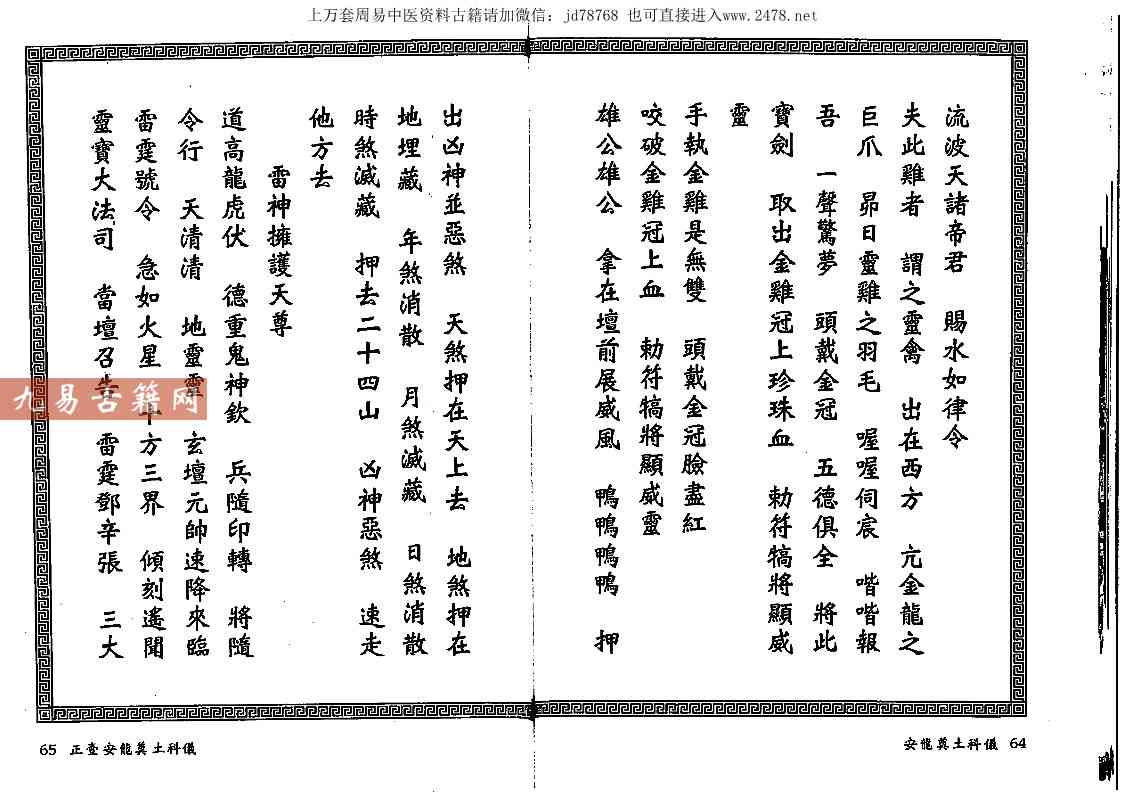 上万套周易中医资料古籍请加微信：jd78768 也可直接进入www.2478.net
流波天諸帝君　賜水如律令
夫此雞者　謂之靈禽　出在西方　亢金龍之
巨爪　昴日靈雞之羽毛　喔喔伺宸　喈喈報
吾　一聲驚夢　頭戴金冠　五德俱全　將此
寶劍　取出金雞冠上珍珠血　勅符犒將顯威
靈
手執金雞是無雙　頭戴金冠臉盡紅
咬破金雞冠上血　勅符犒將顯威靈
雄公雄公　拿在壇前展威風　鴨鴨鴨鴨　押
安龍奠土科儀 64
出凶神並惡煞　天煞押在天上去　地煞押在
地埋藏　年煞消散　月煞滅藏　日煞消散
時煞滅藏　押去二十四山　凶神惡煞　速走
他方去
雷神擁護天尊
道高龍虎伏　德重鬼神欽　兵隨印轉　將隨
令行　天清清　地靈靈　玄壇元帥速降來臨
雷霆號令　急如火星　十方三界　傾刻遙聞
靈寶大法司　當壇召告　雷霆鄧辛張　三大
65 正壹安龍奠土科儀
九易古籍网